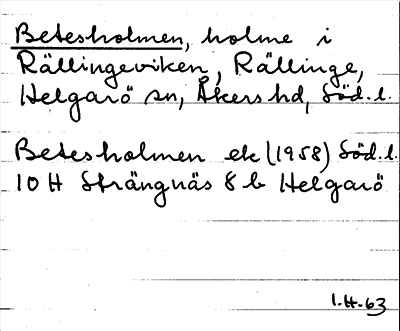 Betesholmen, holme i
Rällingeviken, Rällinge,
Helgarö sn, Åkers hd, Söd. l.
Betesholmen ek (1958) Söd. l.
10 H Strängnäs 8 b Helgarö
1.H.63